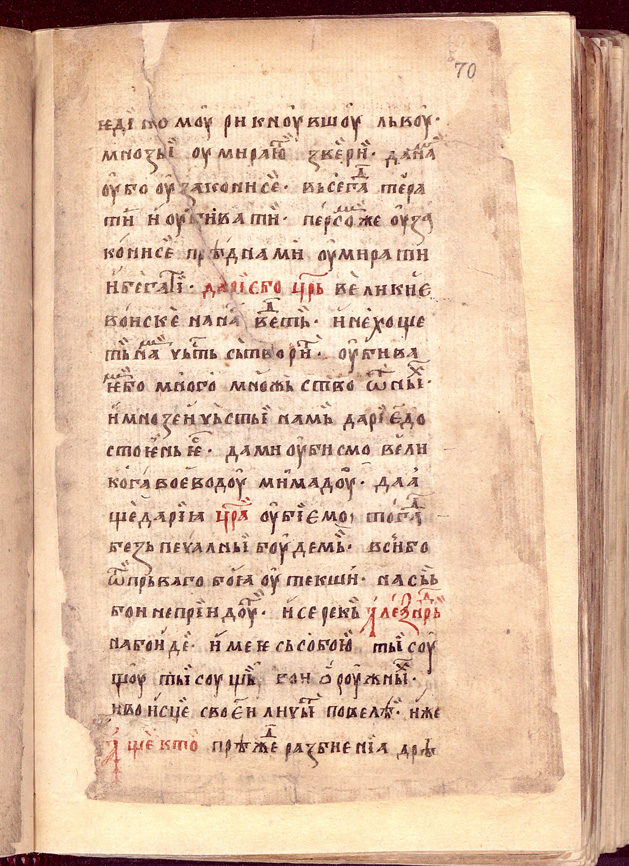 70
ѥдїномоу рикноувшоу львоу·
мнозыї оумираюⷮ звери· дана
оубо оузаконисе· вьсегаⷣ тѣра
ти и оубивати· персоⷨ же оуза
конисе прѣднами оумирати
ибегатїⷮ· дарїе бо црь великиѥ
воиске нана ведⷣеть· и нехоще
ть на чьсть сьтвориⷮ· оубива
ѥбо много множьство ѿниⷯ·
имнозеи чьстыї намь дарїе до
стоѥнь ѥⷭ· дами оубисмо вели
кога воеводоу мимадоу· да а
ще дарїа цра оубїемо, тогаⷣ
безь печалныї боудемь· вси бо
ѿпрьваго боꙗ оутекши· на сьь
бои не прїидоуⷮ· и се рекь алеѯаⷣрь
на бои иде· имеѥ сь собою тысоу
щоу тысоущь бои ѡроужныⷯ·
и воисце своеи личыⷮї повелѣ· иже
аще кто прѣжⷣе разбиенїа дрѣ